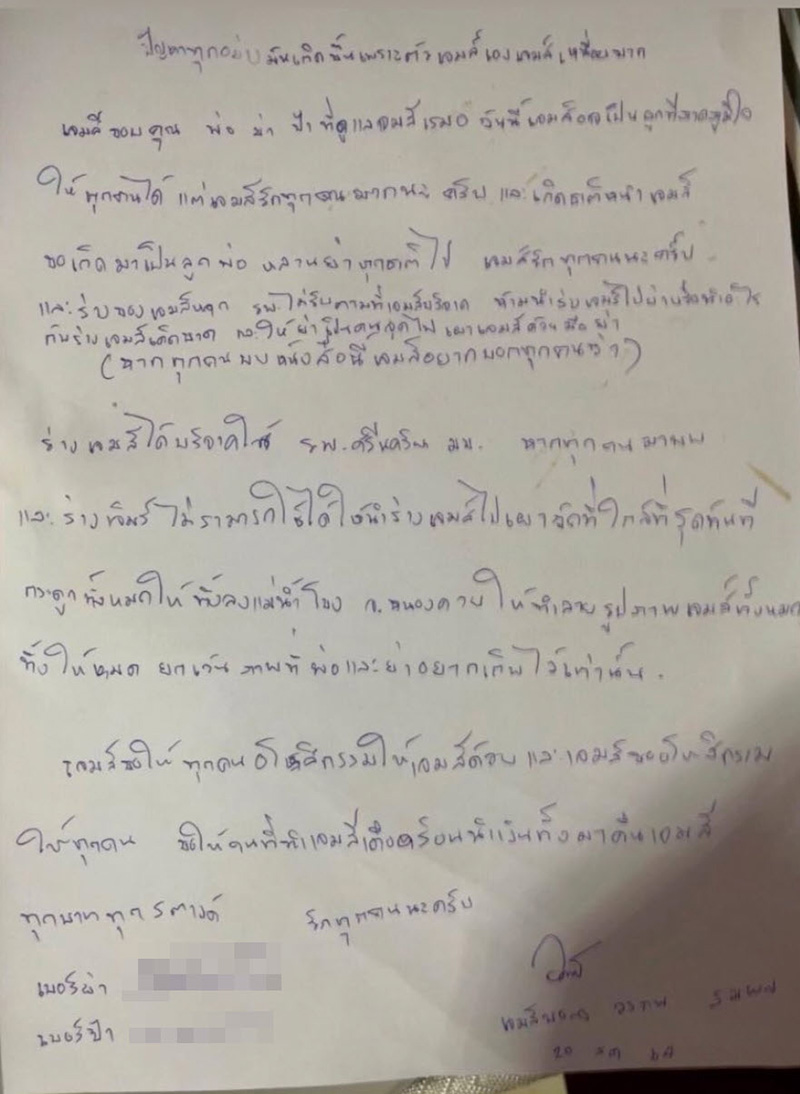 ปัญหาทุกอย่างมันเกิดขึ้นเพราะตัวเจมส์เองเจมส์เหนื่อยมาก
เจมส์ขอบคุณ พ่อ ย่า ป้า ที่ดูแลเจมส์เสมอ วันนี้เจมส์อาจเป็นลูกที่น่าภูมิใจ
ให้ทุกคนได้ แต่เจมส์รักทุกคนมากนะครับ และเกิดชาติหน้าเจมส์
ขอเกิดมาเป็นลูกพ่อ หลานย่าทุกชาติไป เจมส์รักทุกคนนะครับ
และร่างของเจมส์หาก รพ.ไม่รับตามที่เจมส์บริจาค ห้ามนำร่างเจมส์ไป
กับร่างเจมส์เด็ดขาด และให้ย่าเป็นคนจุดไฟเผาเจมส์ด้วยมือย่า
(หากทุกคนพบหนังสือนี้เจมส์อยากบอกทุกคนว่า)
ร่างเจมส์ได้บริจาคให้ รพ.ศรีนครินทร์ มข. หากทุกคนมาพบ
และร่างเจมส์ไม่สามารถใช้ได้ให้นำร่างเจมส์ไปเผาวัดที่ใกล้ที่สุดทันที
กระดูกทั้งหมดให้ทิ้งลงแม่น้ำโขง จ.หนองคาย ให้ทำลายรูปภาพเจมส์ทั้งหมด
ทิ้งให้หมด ยกเว้นภาพที่พ่อและย่าอยากเก็บไว้เท่านั้น.
เจมส์ขอให้ทุกคนอโหสิกรรมให้เจมส์ด้วย และเจมส์ขออโหสิกรรม
ให้ทุกคน ขอให้คนที่ทำเจมส์เดือดร้อนนำเงินทั้งมาคืนเจมส์
ทุกบาททุกสตางค์ รักทุกคนนะครับ
เบอร์ย่า
เบอร์ป้า
20